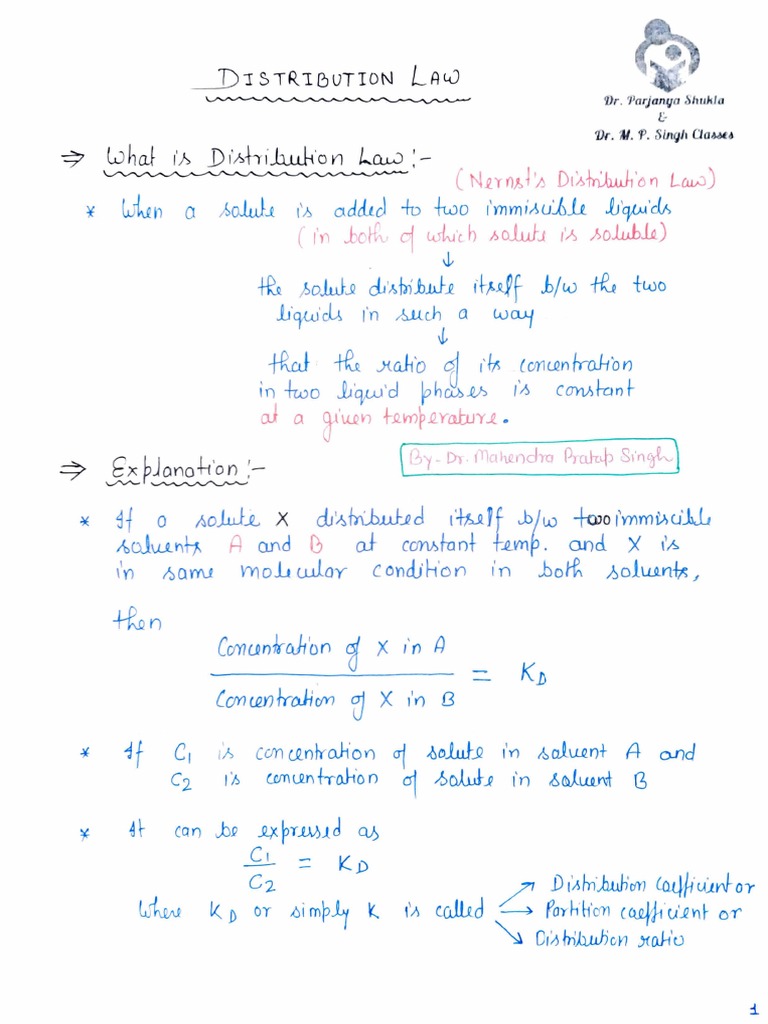 DISTRIBUTION LAW
Dr. Parjanya Shukla
&
Dr. M. P. Singh Classes
⇒ What is Distribution Law :-
(Nernst's Distribution Law)
* When a solute is added to two immiscible liquids
(in both of which solute is soluble)
↓
the solute distribute itself b/w the two
liquids in such a way
↓
that the ratio of its concentration
in two liquid phases is constant
at a given temperature.
⇒ Explanation :-
By- Dr. Mahendra Pratap Singh
* If a solute X distributed itself b/w two immiscible
solvents A and B at constant temp. and X is
in same molecular condition in both solvents,
then
Concentration of X in A
= KD
Concentration of X in B
* If C1 is concentration of solute in solvent A and
C2 is concentration of solute in solvent B
* It can be expressed as
C1
= KD
C2
Where KD or simply K is called
→ Distribution coefficient or
→ Partition coefficient or
→ Distribution ratio
1